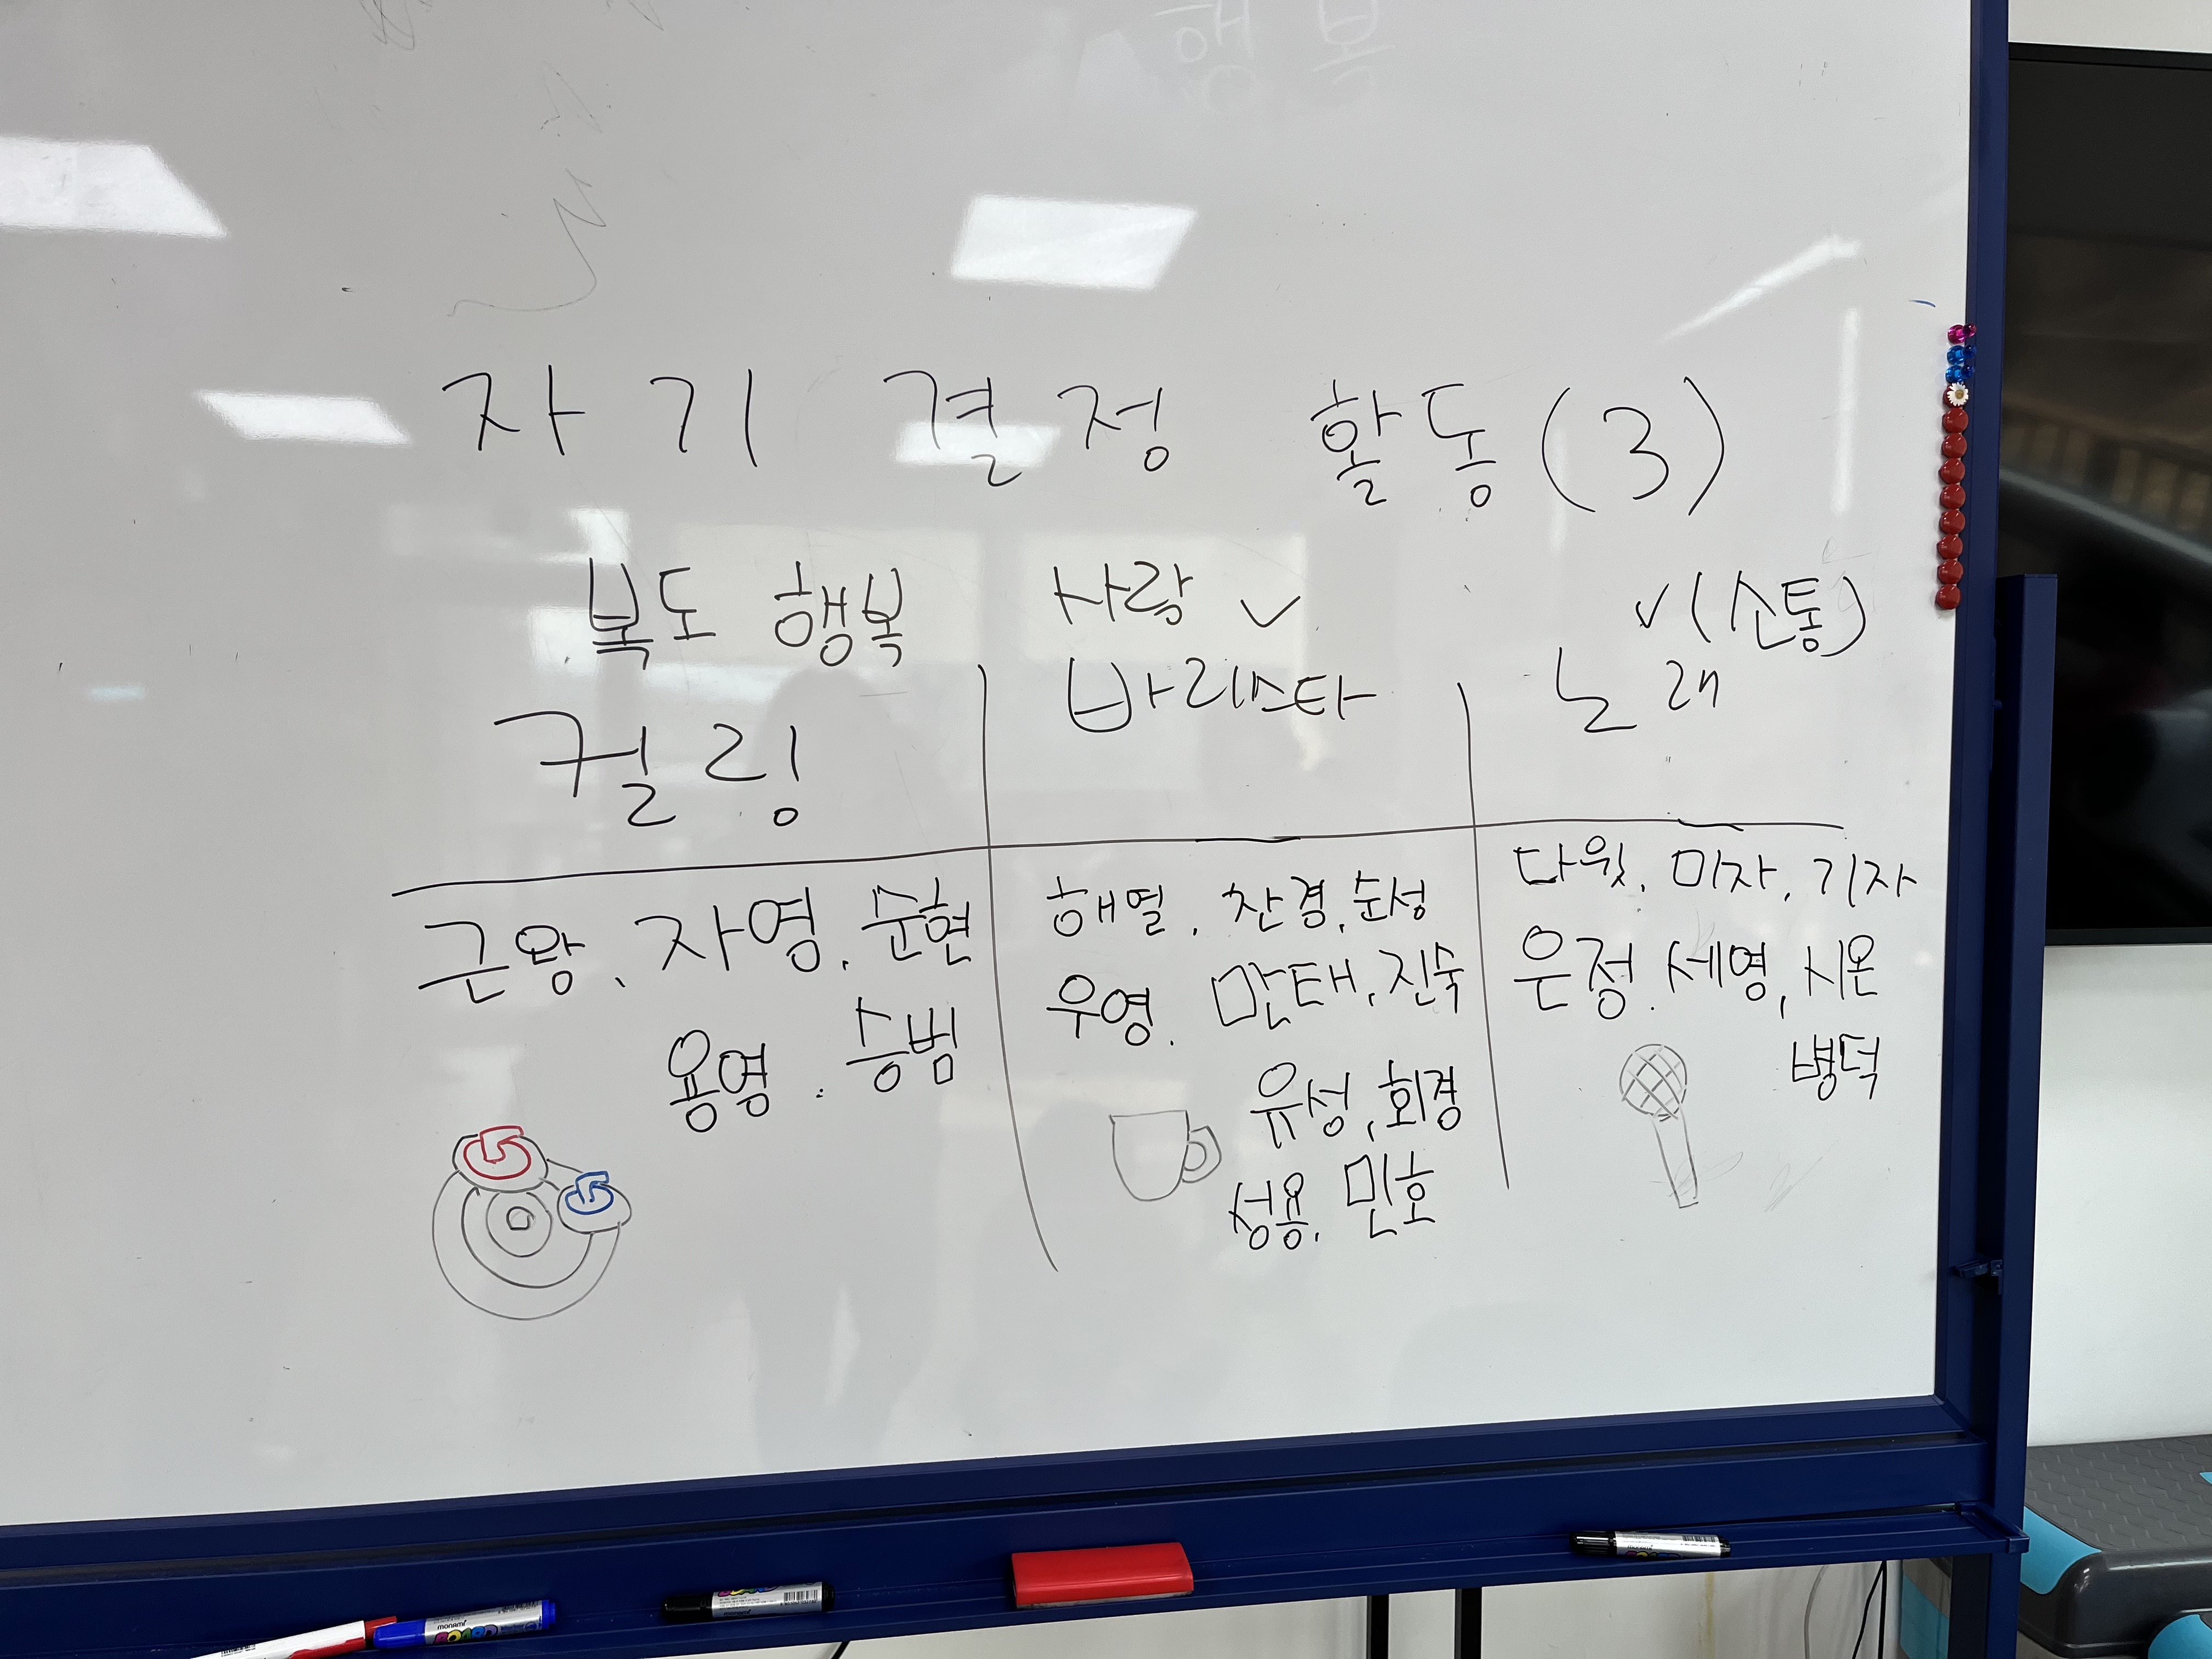 자기 결정 활동(3)
복도 행복
사랑 ✓
✓(소통)
컬링
바리스타
노래
근왕, 자영, 순현
용영, 승범
해열, 찬경, 순성
우영, 만태, 진숙
유성, 회경
성용, 민호
다윗, 미자, 기자
은정, 세영, 시온
병덕
monami
monami